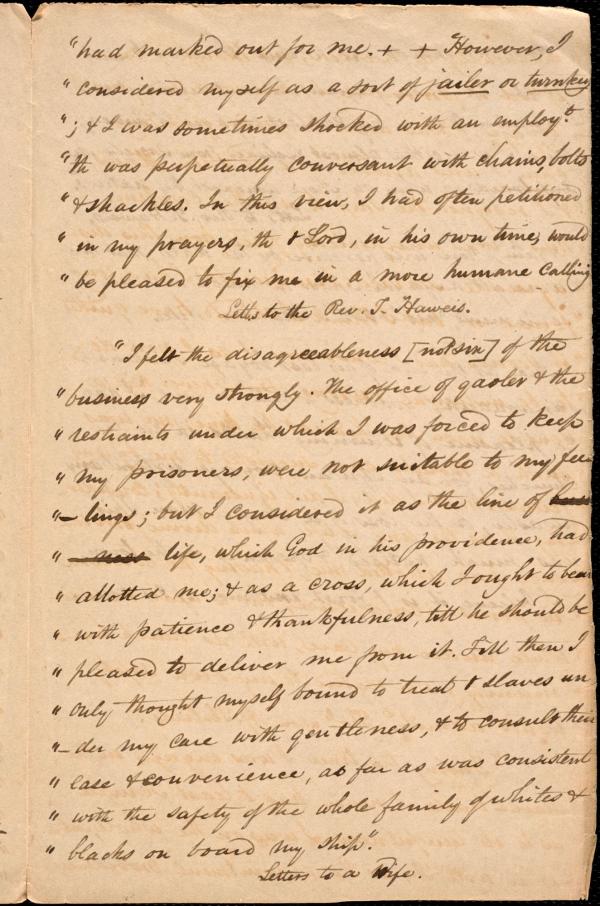 "had marked out for me. + + "However, I
"considered myself as a sort of jailer or turnkey
"; & I was sometimes shocked with an employt.
"th was perpetually conversant with chains, bolts
"& shackles. In this view, I had often petitioned
"in my prayers, th t Lord, in his own time, would
"be pleased to fix me in a more humane calling
Letts. to the Rev. T. Haweis.
"I felt the disagreeableness [not sin] of the
"business very strongly. The office of gaoler & the
"restraints under which I was forced to keep
"my prisoners, were not suitable to my fee
"-lings; but I considered it as the line of busi
"-ness life, which God in his providence, had
"allotted me; & as a cross, which I ought to bear
"with patience & thankfulness, till he should be
"pleased to deliver me from it. Till then I
"only thought myself bound to treat t slaves un
"-der my care with gentleness, & to consult their
"ease & convenience, as far as was consistent
"with the safety of the whole family of whites &
"blacks on board my ship".
Letters to a Wife.